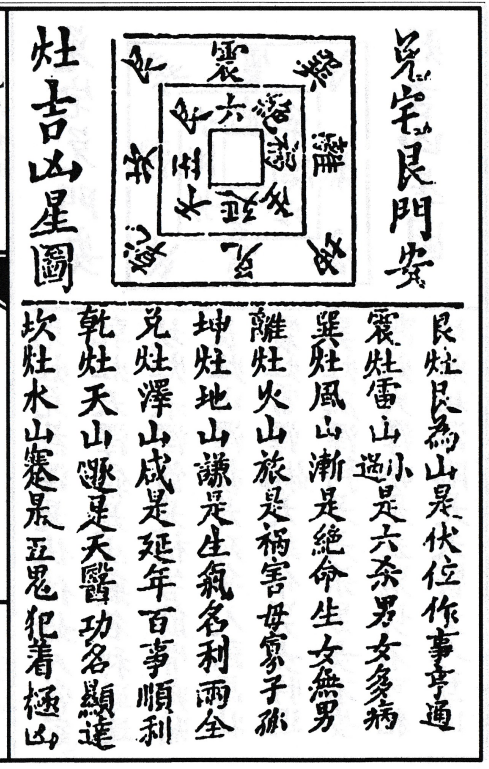 兑宅艮門安
灶吉凶星圖
震
巽
離
坤
兑
乾
坎
艮
六
絕
禍
生
延
天
五
伏
艮灶艮為山是伏位作事亨通
震灶雷山小過是六杀男女多病
巽灶風山漸是絕命生女無男
離灶火山旅是禍害母寡子孤
坤灶地山謙是生氣名利兩全
兑灶澤山咸是延年百事順利
乾灶天山遯是天醫功名顯達
坎灶水山蹇是五鬼犯着極凶